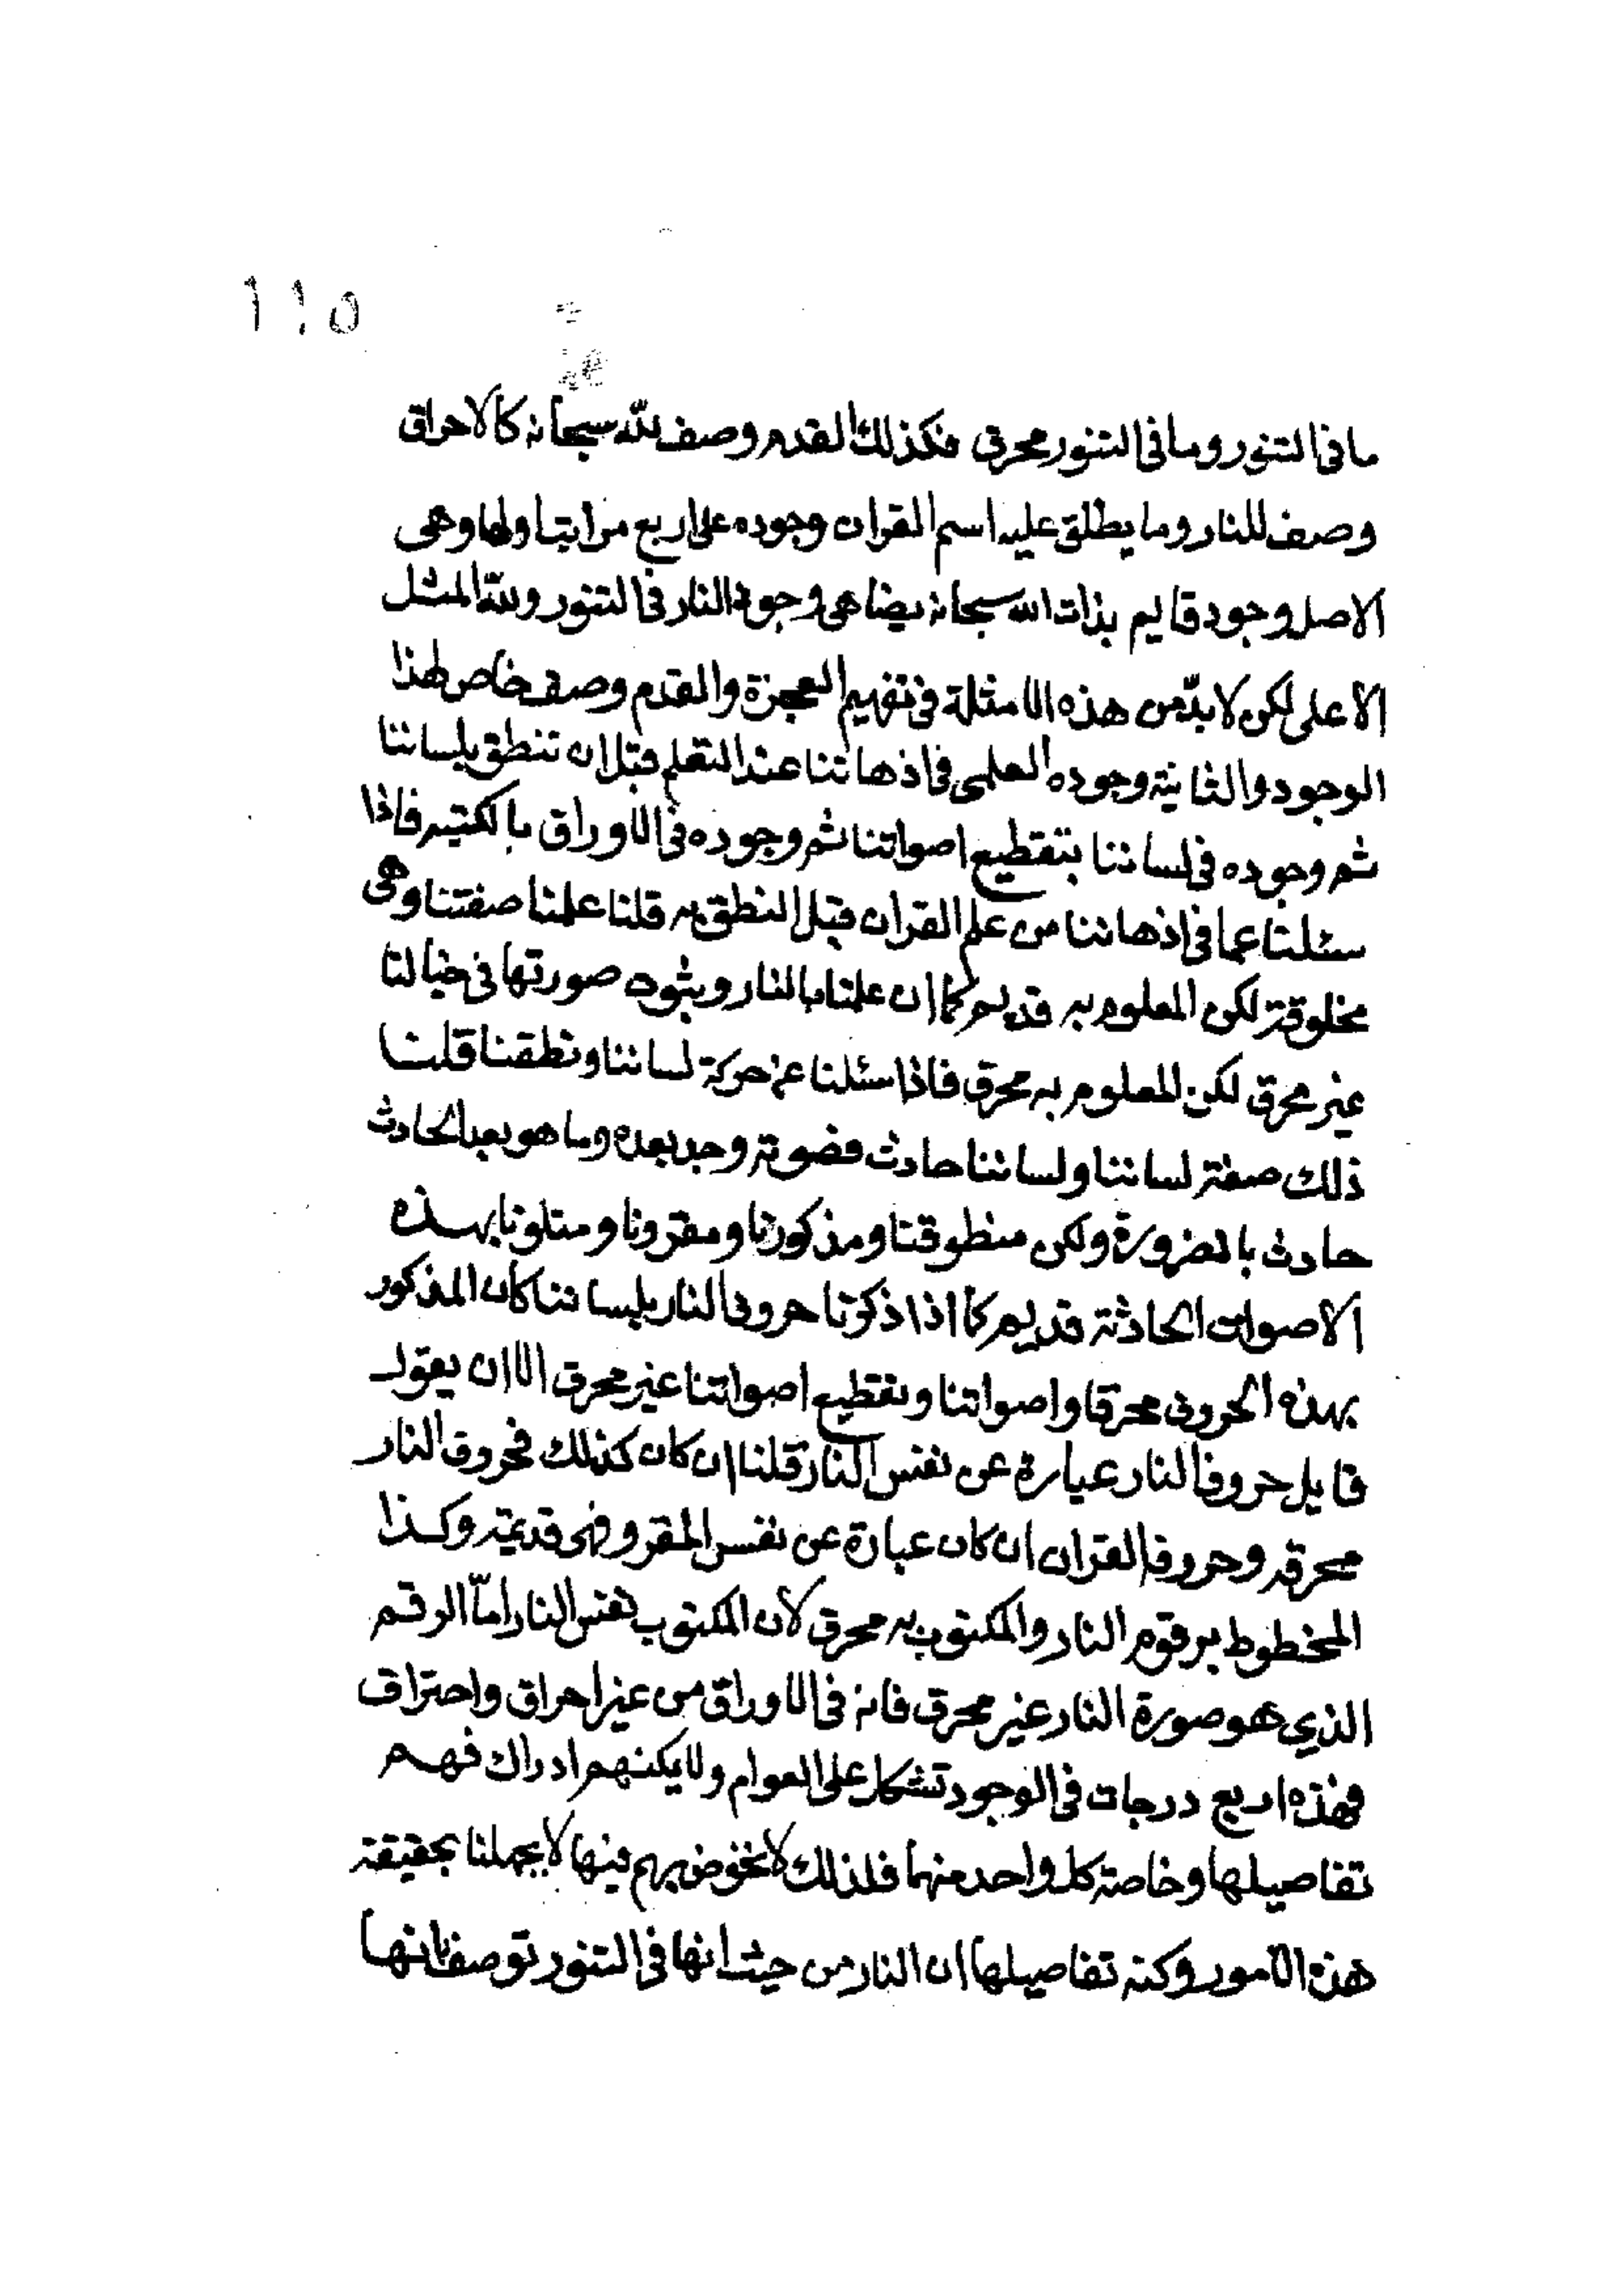 ١١٥
ما فى التنور وما فى التنور محرق فكذلك القدم وصف لله سبحانه كالاحراق
وصف للنار وما يطلق عليه اسم القران وجوده على اربع مراتب اولها وهى
الاصل وجود قايم بذات الله سبحانه يضاهى وجود النار فى التنور ولله المثل
الاعلى لكن لا بدّ من هذه الامثلة فى تفهيم العجزة والقدم وصف خاص لهذا
الوجود والثانية وجوده العلمى فى اذهاننا عند التعلم قبل ان ننطق بلساننا
ثم وجوده فى لساننا بتقطيع اصواتنا ثم وجوده فى الاوراق بالكتبه فاذا
سئلنا عما فى اذهاننا من علم القران قبل النطق به قلنا علمنا صفتنا وهى
مخلوقة لكن المعلوم به قديم كما ان علمنا بالنار وثبوت صورتها فى خيالنا
غير محرق لكن المعلوم به محرق فاذا سئلنا عن حركة لساننا ونطقنا قلنا
ذلك صفة لساننا ولساننا حادث فصوته وجد بعده وما هو بعد الحادث
حادث بالضرورة ولكن منطوقنا ومذكورنا ومقرونا ومتلونا بهذه
الاصوات الحادثة قديم كما اذا ذكرنا حروف النار بلساننا كان المذكور
بهذه الحروف محرقا واصواتنا وتقطيع اصواتنا غير محرق الا ان يقول
قايل حروف النار عبارة عن نفس النار قلنا ان كان كذلك فحروف النار
محرقه وحروف القران ان كان عبارة عن نفس المقرو فهى قديمة وكذا
المخطوط برقوم النار والمكتوب به محرق لان المكتوب نفس النار امّا الرقم
الذي هو صورة النار غير محرق فانه فى الاوراق من غير احراق واحتراق
فهذه اربع درجات فى الوجود تشكل على العوام ولا يمكنهم ادراك فهم
تفاصيلها وخاصة كل واحد منها فلذلك لا نخوض بهم فيها لا بجهلنا بحقيقة
هذه الامور وكنه تفاصيلها ان النار من حيث انها فى التنور توصف بانها